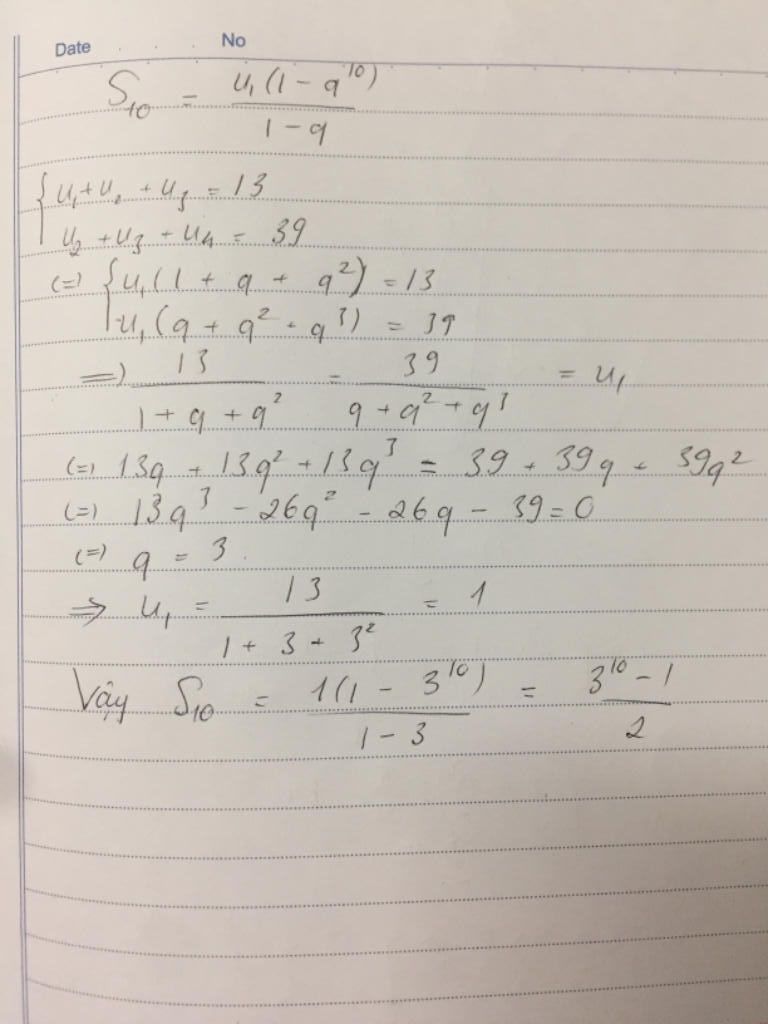 Date No
S₁₀ = u₁(1 - q¹⁰) / (1 - q)
{ u₁ + u₂ + u₃ = 13
u₂ + u₃ + u₄ = 39
(=) { u₁(1 + q + q²) = 13
u₁(q + q² + q³) = 39
=) 13 / (1 + q + q²) = 39 / (q + q² + q³) = u₁
(=) 13q + 13q² + 13q³ = 39 + 39q + 39q²
(=) 13q³ - 26q² - 26q - 39 = 0
(=) q = 3.
=> u₁ = 13 / (1 + 3 + 3²) = 1
Vậy S₁₀ = 1(1 - 3¹⁰) / (1 - 3) = (3¹⁰ - 1) / 2